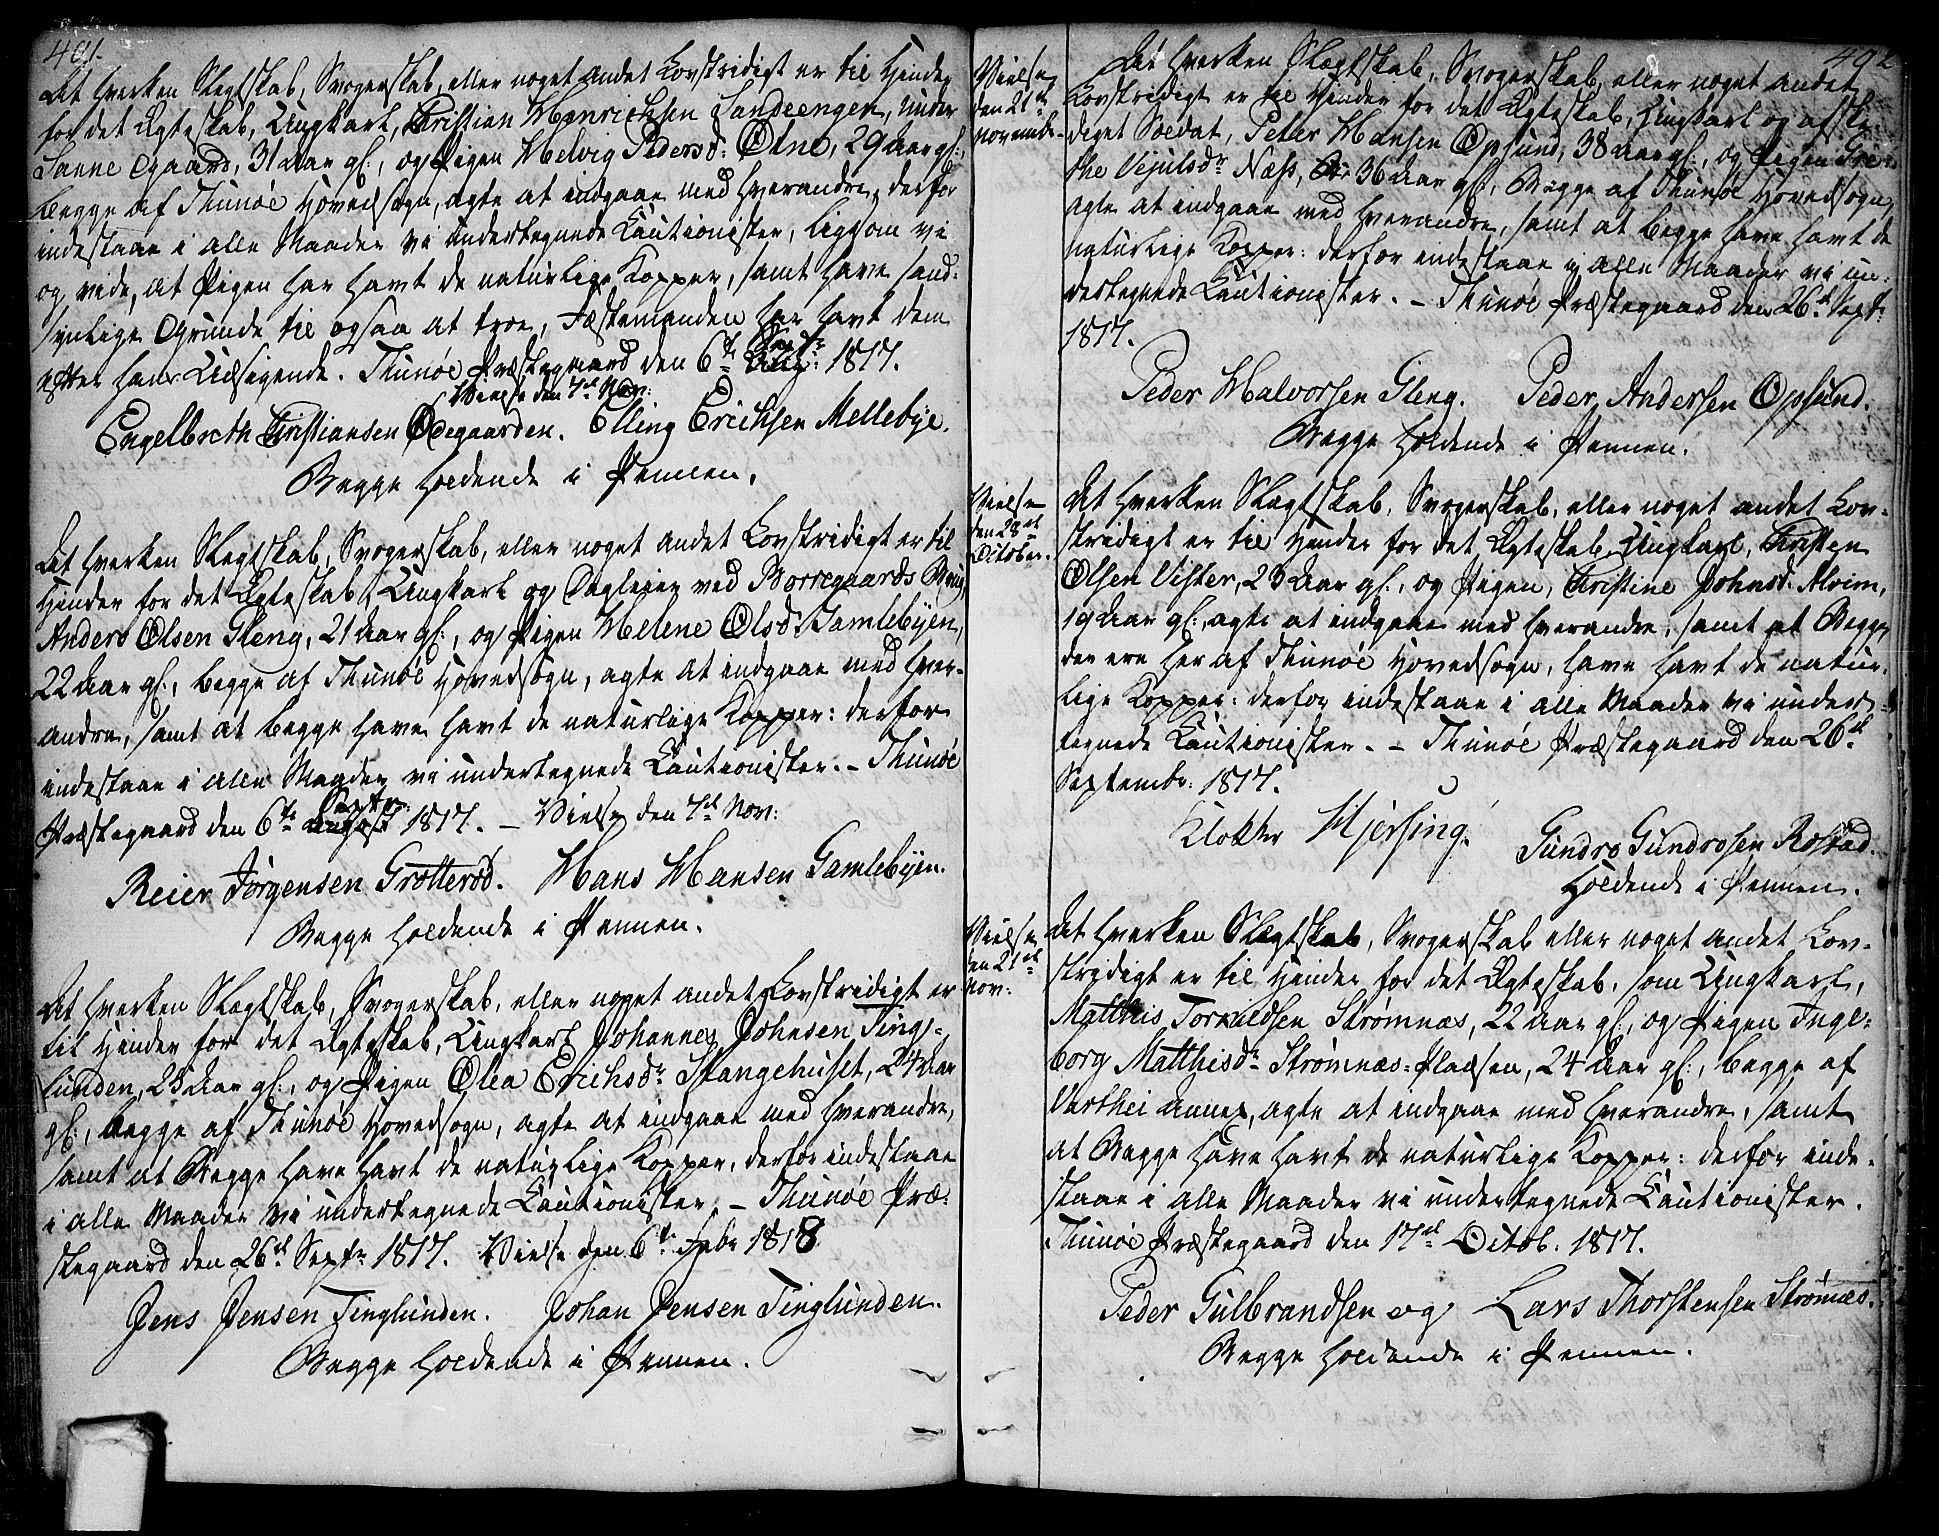 491.
At hverken Slegtskab, Svogerskab, eller noget andet Lovstridigt er til Hinder
for det Ægteskab, Ungkarl, Christian Henrichsen Sandeengen, under
Sanne Egaard, 31 Aar gl:, og Pigen Helvig Pedersd: Ølne, 29 Aar gl:,
begge af Thunöe Hovedsogn, agte at indgaae med hverandre, derfor
indestaae i alle Maader vi undertegnede Cautionister, ligesom vi
og vide, at Pigen har havt de naturlige Kopper, samt have sand-
synlige Grunde til ogsaa at troe, Fæstemanden har havt dem
efter hans Udsigende. Thunöe Præstegaard den 6te Septr: 1817.
Vielse den 7de Nov:
Engelbreth Christiansen Ødegaarden. Elling Erichsen Mellebye.
Begge holdende i Pennen.
At hverken Slegtskab, Svogerskab, eller noget andet Lovstridigt er til
Hinder for det Ægteskab, Ungkarl og Dagleier ved Borregaards Brug
Anders Olsen Gleng, 21 Aar gl:, og Pigen Helene Olsd: Gamlebyen,
22 Aar gl:, begge af Thunöe Hovedsogn, agte at indgaae med hver-
andre, samt at begge have havt de naturlige Kopper: derfor
indestaae i alle Maader vi undertegnede Cautionister. – Thunöe
Præstegaard den 6te Septr: August 1817. – Vielse den 7de Nov:
Reier Jörgensen Grötteröd. Hans Hansen Gamlebyen.
Begge holdende i Pennen.
At hverken Slegtskab, Svogerskab, eller noget andet Lovstridigt er
til Hinder for det Ægteskab, Ungkarl Johannes Johnsen Ting-
lunden, 25 Aar gl:, og Pigen Olea Erichsdr Stangehuset, 24 Aar
gl:, begge af Thunöe Hovedsogn, agte at indgaae med hverandre,
samt at Begge have havt de naturlige Kopper, derfor indestaae
i alle Maader vi undertegnede Cautionister. – Thunöe Præ-
stegaard den 26de Septr 1817. Vielse den 6te Febr 1818
Jens Jensen Tinglunden. Johan Jensen Tinglunden.
Begge holdende i Pennen.
492
Vielse
den 21de
novembr.
At hverken Slægtskab, Svogerskab, eller noget andet
Lovstridigt er til Hinder for det Ægteskab, Ungkarl og afske-
diget Soldat, Peter Hansen Opsund, 38 Aar gl:, og Pigen Gre-
the Vejulsdr Næss, 36 Aar gl:, Begge af Thunöe Hovedsogn,
agte at indgaae med hverandre, samt at begge have havt de
naturlige Kopper: derfor indestaae i alle Maader vi un-
dertegnede Cautionister. – Thunöe Præstegaard den 26de Septr:
1817.
Peder Halvorsen Gleng. Peder Andersen Opsund.
Begge holdende i Pennen.
Vielse
den 28de
October.
At hverken Slegtskab, Svogerskab, eller noget andet Lov-
stridigt er til Hinder for det Ægteskab Ungkarl, Christen
Olsen Vister, 23 Aar gl:, og Pigen, Christine Johnsd: Alvim,
19 Aar gl:, agte at indgaae med hverandre, samt at Begge
der ere her af Thunöe Hovedsogn, have havt de natur-
lige Kopper: derfor indestaae i alle Maader vi under-
tegnede Cautionister. – Thunöe Præstegaard den 26de
Septembr: 1817.
Klokker Hjersing. Gundro Gundrosen Rostad.
holdende i Pennen.
Vielse
den 21de
nov:
At hverken Slegtskab, Svogerskab eller noget andet Lov-
stridigt er til Hinder for det Ægteskab, som Ungkarl,
Matthis Torkildsen Strømnæs, 22 Aar gl:, og Pigen Inge-
borg Matthisdr Strømnæs-Pladsen, 24 Aar gl:, begge af
Varthei annex, agte at indgaae med hverandre, samt
at Begge have havt de naturlige Kopper: derfor inde-
staae i alle Maader vi undertegnede Cautionister.
Thunöe Præstegaard den 17de Octob: 1817.
Peder Gulbrandsen og Lars Thorstensen Strømnæs.
Begge holdende i Pennen.